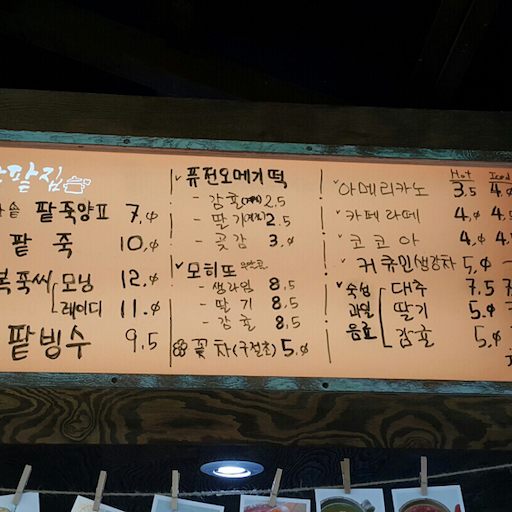 팥집
팥죽양ㅍ 7.0
팥 죽 10.0
복쭉씨 모닝 12.0
레이디 11.0
팥빙수 9.5
퓨전오메기떡
- 감귤 2.5
- 딸기 2.5
- 곶감 3.0
모히또 무알콜
- 생라임 8.5
- 딸 기 8.5
- 감 귤 8.5
꽃차(구절초) 5.0
Hot Iced
아메리카노 3.5 4.0
카페라떼 4.0 4.
코코아 4.0 4.
커큐민생강차 5.0 -
숙성 과일 음료
대추 7.5 7
딸기 5.0
감귤 5.0